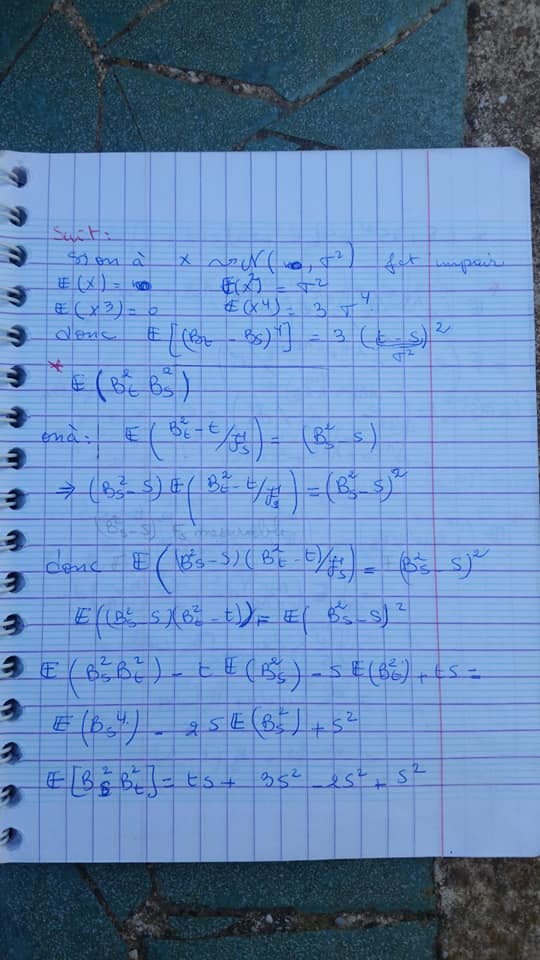 Suit:
si on à X ~ N( , σ²) fct impair
E(X) = E(X²) = σ²
E(X3) = 0 E(X4) = 3 σ⁴
donc E[(Bt - Bs)⁴] = 3 (t - s)²
σ²
* E(Bt² Bs²)
on à: E(Bt² - t / Fs) = (Bs² - s)
⇒ (Bs² - s) E(Bt² - t / Fs) = (Bs² - s)²
(Bs² - s) Fs
donc E((Bs² - s)(Bt² - t) / Fs) = (Bs² - s)²
E((Bs² - s)(Bt² - t)) = E(Bs² - s)²
E(Bs² Bt²) - t E(Bs²) - s E(Bt²) + ts =
E(Bs⁴) - 2s E(Bs²) + s²
E[Bs² Bt²] = ts + 3s² - 2s² + s²